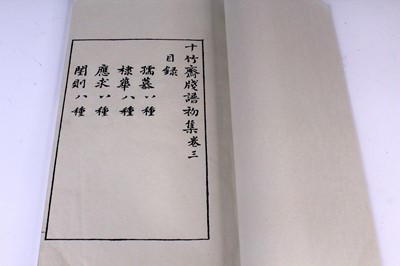 十竹齋牋譜初集卷三
目錄
孺慕八種
棣華八種
應求八種
閨則八種